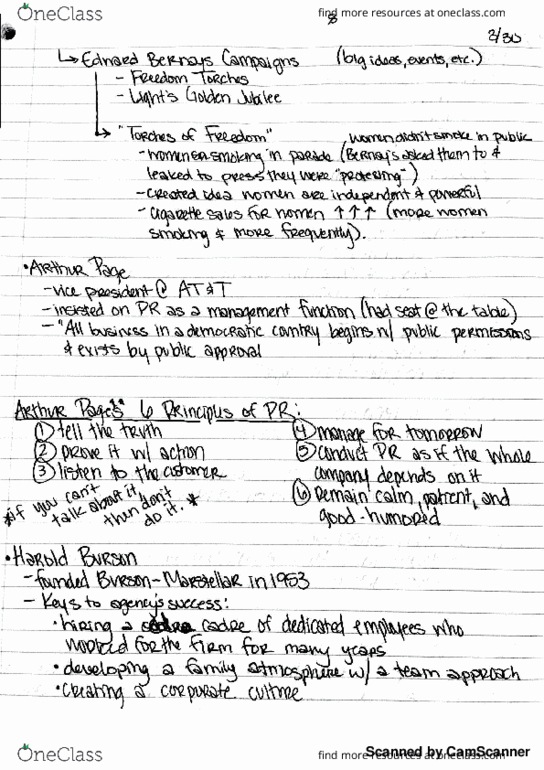 OneClass
find more resources at oneclass.com
8
2/30
↳ Edward Bernays Campaigns (big ideas, events, etc.)
- Freedom Torches
- Light's Golden Jubilee
"Torches of Freedom" women didn't smoke in public
- women smoking in parade (Bernays asked them to &
leaked to press they were "protesting")
- created idea women are independent & powerful
- cigarette sales for women ↑↑↑ (more women
smoking & more frequently).
• Arthur Page
- vice president @ AT&T
- insisted on PR as a management function (had seat @ the table)
- "All business in a democratic country begins w/ public permissions
& exists by public approval
Arthur Page's 6 Principles of PR:
① tell the truth
② prove it w/ action
③ listen to the customer
*if you can't
talk about it,
then don't
do it. *
④ manage for tomorrow
⑤ conduct PR as if the whole
company depends on it
⑥ remain calm, patient, and
good-humored
• Harold Burson
- founded Burson-Marstellar in 1953
- Keys to agency's success:
• hiring a cadre of dedicated employees who
worked for the firm for many years
• developing a family atmosphere w/ a team approach
• creating a corporate culture
OneClass
find more resources at oneclass.com
Scanned by CamScanner